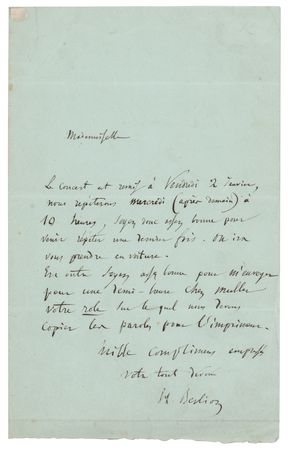 Mademoiselle
Le concert est remis à Vendredi 2 février,
nous répéterons mercredi (après demain) à
10 heures. Soyez donc assez bonne pour
venir répéter une dernière fois. On ira
vous prendre en voiture.
En outre soyez assez bonne pour m'envoyer
pour une demi-heure chez
votre role sur le quel nous devons
copier les paroles pour l'imprimeur.
Mille complimens empressés
votre tout dévoué
H. Berlioz